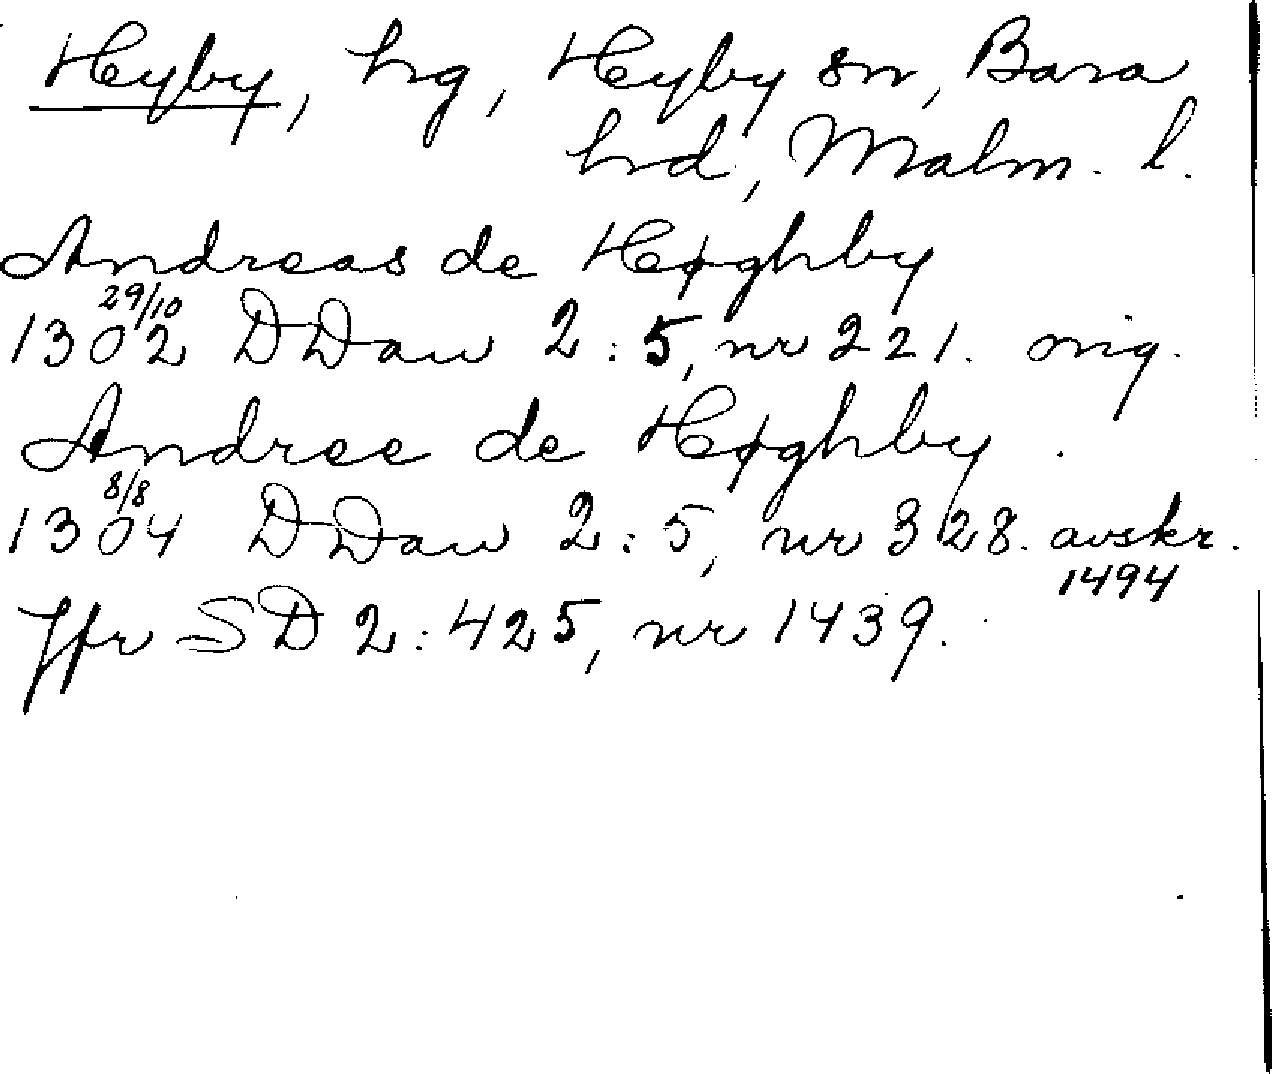 Hyby, hg, Hyby sn, Bara
hd, Malm. l.
Andreas de Høghby
29/10
1302 DDan 2:5, nr 221. orig.
Andree de Høghby.
8/8
1304 DDan 2:5, nr 328. avskr.
1494
Jfr SD 2:425, nr 1439.